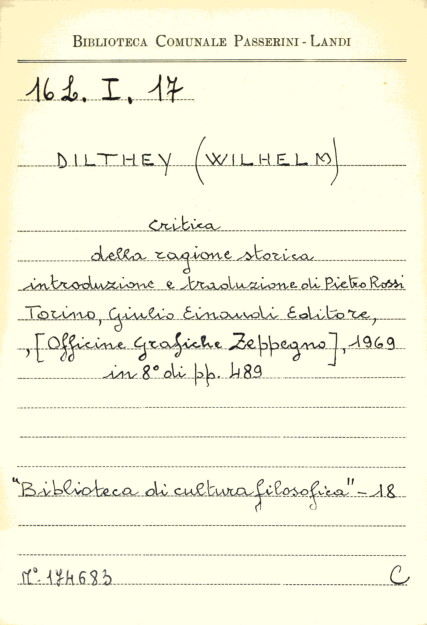 BIBLIOTECA COMUNALE PASSERINI - LANDI
16 L. I. 17
DILTHEY (WILHELM)
Critica
della ragione storica
introduzione e traduzione di Pietro Rossi
Torino, Giulio Einaudi Editore,
, [Officine Grafiche Zeppegno], 1969
in 8° di pp. 489
"Biblioteca di cultura filosofica" - 18
N°. 174683 C